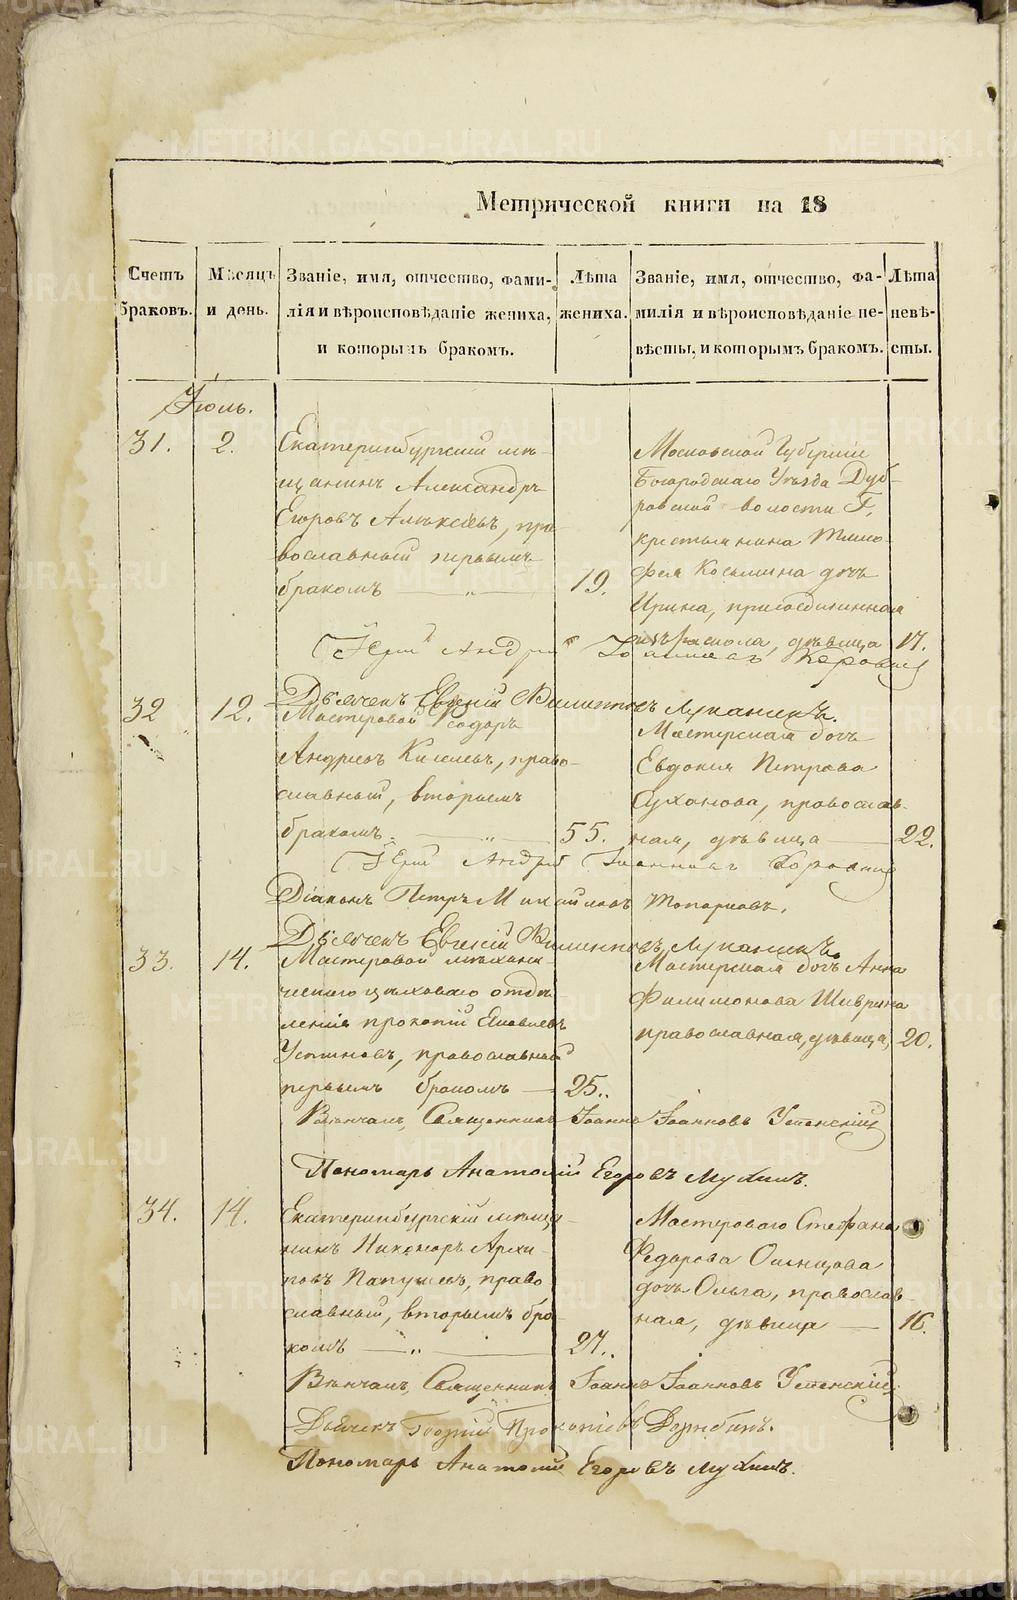 Метрической книги на 18
Счетъ браковъ.
Мѣсяцъ и день.
Званіе, имя, отчество, фами-
лія и вѣроисповѣданіе жениха,
и которымъ бракомъ.
Лѣта
жениха.
Званіе, имя, отчество, фа-
милія и вѣроисповѣданіе не-
вѣсты, и которымъ бракомъ.
Лѣта
невѣ-
сты.
Іюль.
31.
2.
Екатеринбургскій мѣ-
щанинъ Александръ
Егоровъ Алексѣевъ, пра-
вославный первымъ
бракомъ — „ —
19.
Московской Губерніи
Богородскаго Уѣзда Дуб-
ровской волости Г.
крестьянина Тимо-
фея Косьмина дочь
Ирина, присоединенная
изъ раскола, дѣвица
17.
Іерей Андрей Іоанновъ Коровинъ
Дьячекъ Евгеній Филипповъ Луканинъ.
32
12.
Мастеровой Ѳеодоръ
Андреевъ Киселевъ, право-
славный, вторымъ
бракомъ. — „ —
55.
Мастерская дочь
Евдокія Петрова
Суханова, православ-
ная, дѣвица —
22.
Іерей Андрей Іоанновъ Коровинъ
Діаконъ Петръ Михайловъ Топорковъ.
Дьячекъ Евгеній Филипповъ Луканинъ
33.
14.
Мастеровой механи-
ческаго цѣховаго отдѣ-
ленія Прокопій Яковлевъ
Устиновъ, православный
первымъ бракомъ —
25..
Мастерская дочь Анна
Филимонова Шаврина
православная, дѣвица,
20.
Вѣнчалъ, Священникъ Іоаннъ Іоанновъ Успенскій
Пономарь Анатолій Егоровъ Мухинъ.
34.
14.
Екатеринбургскій мѣща-
нинъ Никоноръ Архи-
повъ Папушевъ, право
славный, вторымъ бра-
комъ — „ —
27..
Мастероваго Стефана
Федорова Оленцова
дочь Ольга, православ-
ная, дѣвица —
16.
Вѣнчалъ, Священникъ Іоаннъ Іоанновъ Успенскій.
Дьячекъ Георгій Прокопіевъ Дерябинъ.
Пономарь Анатолій Егоровъ Мухинъ.
METRIKI.GASO-URAL.RU